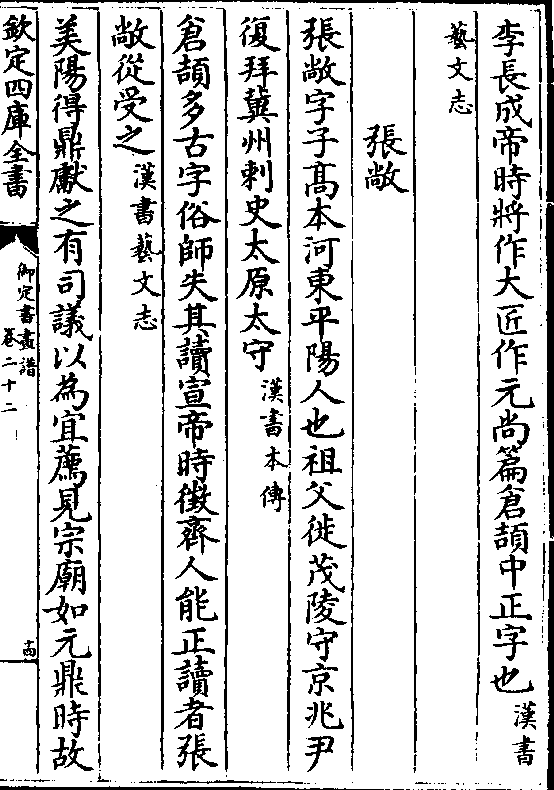 李長成帝時將作大匠作元尚篇倉頡中正字也漢書
藝文志
張敞
張敞字子高本河東平陽人也祖父徙茂陵守京兆尹
復拜冀州刺史太原太守漢書本傳
倉頡多古字俗師失其讀宣帝時徴齊人能正讀者張
敞從受之漢書藝文志
美陽得鼎獻之有司議以為宜薦見宗廟如元鼎時故
欽定四庫全書
御定書畫譜
卷二十二
十四